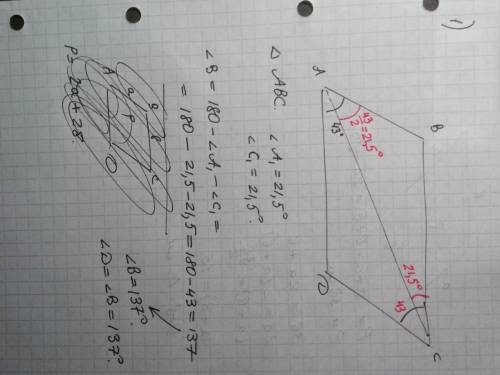 1)
B
A
C
D
43/2=21,5°
43°
21,5°
43
△ ABC.
∠A₁=21,5°
∠C₁=21,5°.
∠B=180-∠A₁-∠C₁=
=180-21,5-21,5=180-43=137
∠B=137°.
∠D=∠B=137°.
P=2a+2B.